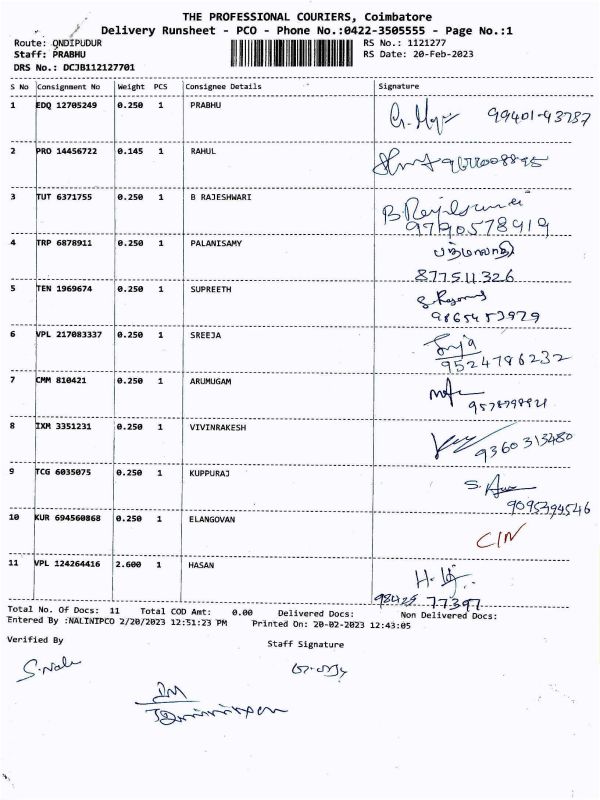 THE PROFESSIONAL COURIERS, Coimbatore
Delivery Runsheet - PCO - Phone No.:0422-3505555 - Page No.:1
Route: ONDIPUDUR RS No.: 1121277
Staff: PRABHU RS Date: 20-Feb-2023
DRS No.: DCJB112127701
S No Consignment No Weight PCS Consignee Details Signature
1 EDQ 12705249 0.250 1 PRABHU
99401-43787
2 PRO 14456722 0.145 1 RAHUL
3 TUT 6371755 0.250 1 B RAJESHWARI
9790578919
4 TRP 6878911 0.250 1 PALANISAMY
877511326
5 TEN 1969674 0.250 1 SUPREETH
9865453929
6 VPL 217083337 0.250 1 SREEJA
9524786232
7 CMM 810421 0.250 1 ARUMUGAM
8 IXM 3351231 0.250 1 VIVINRAKESH
9360313480
9 TCG 6035075 0.250 1 KUPPURAJ
9095394546
10 KUR 694560868 0.250 1 ELANGOVAN
CIN
11 VPL 124264416 2.600 1 HASAN
98425 77397
Total No. Of Docs: 11 Total COD Amt: 0.00 Delivered Docs: Non Delivered Docs:
Entered By :NALINIPCO 2/20/2023 12:51:23 PM Printed On: 20-02-2023 12:43:05
Verified By Staff Signature